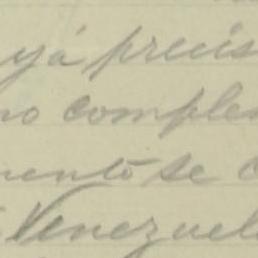 yá precis
no complem
mento se c
Venezuel